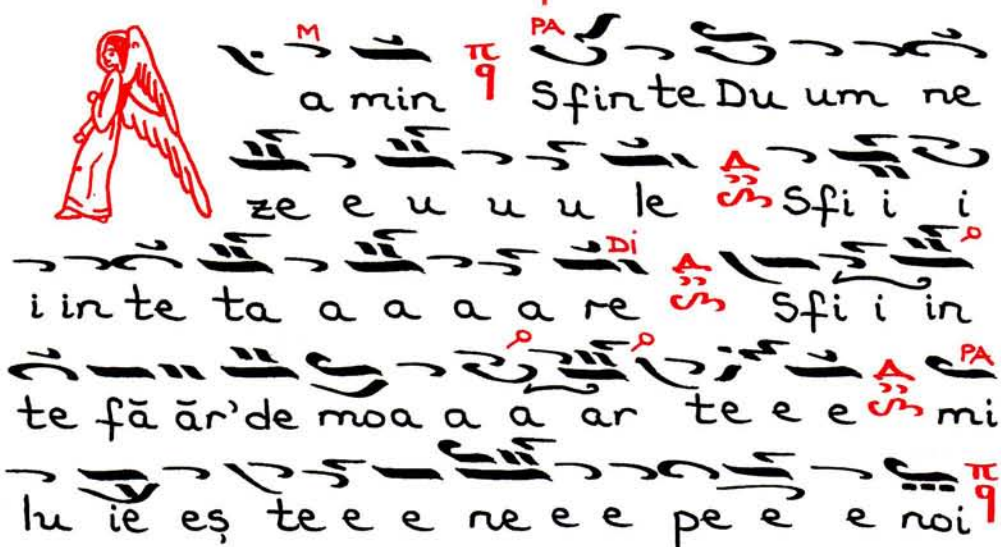 M PA
a min π q Sfin te Du um ne
ze e u u u le Sfi i i
Di
i in te ta a a a a re Sfi i in
PA
te fă ăr'de moa a a ar te e e mi
lu ie eș te e e ne e e pe e e noi π q